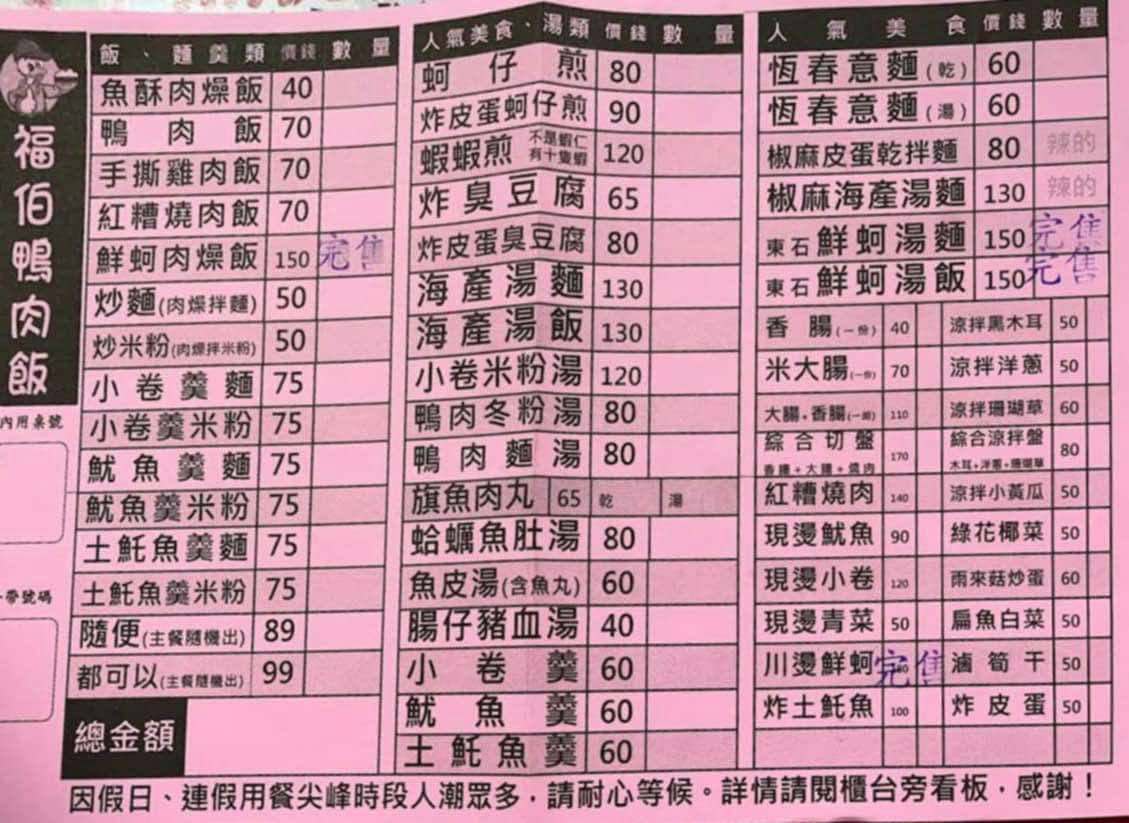 福伯鴨肉飯
內用桌號
帶號碼
飯、麵羹類 價錢 數量
魚酥肉燥飯 40
鴨肉飯 70
手撕雞肉飯 70
紅糟燒肉飯 70
鮮蚵肉燥飯 150 完售
炒麵(肉燥拌麵) 50
炒米粉(肉燥拌米粉) 50
小卷羹麵 75
小卷羹米粉 75
魷魚羹麵 75
魷魚羹米粉 75
土魠魚羹麵 75
土魠魚羹米粉 75
隨便(主餐隨機出) 89
都可以(主餐隨機出) 99
總金額
人氣美食、湯類 價錢 數量
蚵仔煎 80
炸皮蛋蚵仔煎 90
蝦蝦煎 不是蝦仁 有十隻蝦 120
炸臭豆腐 65
炸皮蛋臭豆腐 80
海產湯麵 130
海產湯飯 130
小卷米粉湯 120
鴨肉冬粉湯 80
鴨肉麵湯 80
旗魚肉丸 65 乾 湯
蛤蠣魚肚湯 80
魚皮湯(含魚丸) 60
腸仔豬血湯 40
小卷羹 60
魷魚羹 60
土魠魚羹 60
人氣美食 價錢 數量
恆春意麵(乾) 60
恆春意麵(湯) 60
椒麻皮蛋乾拌麵 80 辣的
椒麻海產湯麵 130 辣的
東石鮮蚵湯麵 150 完售
東石鮮蚵湯飯 150 完售
香腸(一份) 40 涼拌黑木耳 50
米大腸(一份) 70 涼拌洋蔥 50
大腸+香腸(一組) 110 涼拌珊瑚草 60
綜合切盤 170 綜合涼拌盤 80
香腸+大腸+燒肉 木耳+洋蔥+珊瑚草
紅糟燒肉 140 涼拌小黃瓜 50
現燙魷魚 90 綠花椰菜 50
現燙小卷 120 雨來菇炒蛋 60
現燙青菜 50 扁魚白菜 50
川燙鮮蚵 完售 滷筍干 50
炸土魠魚 100 炸皮蛋 50
因假日、連假用餐尖峰時段人潮眾多，請耐心等候。詳情請閱櫃台旁看板，感謝！